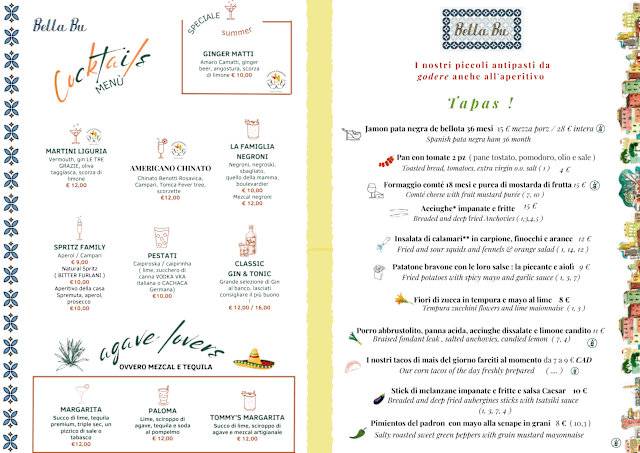 Bella Bu
Cocktails
MENÙ
SPECIALE
summer
GINGER MATTI
Amaro Camatti, ginger
beer, angostura, scorza
di limone € 10,00
MARTINI LIGURIA
Vermouth, gin LE TRE
GRAZIE, oliva
taggiasca, scorza di
limone
€ 12,00
AMERICANO CHINATO
Chinato Benotti Rosavica,
Campari, Tonica Fever tree,
scorzette
€12,00
LA FAMIGLIA
NEGRONI
Negroni, negroski,
sbagliato,
quello della mamma,
boulevardier
€ 10,00
Mezcal negroni
€ 12,00
SPRITZ FAMILY
Aperol / Campari
€ 9,00
Natural Spritz
( BITTER FURLANI )
€10,00
Aperitivo della casa
Spremuta, aperol,
prosecco
€10,00
PESTATI
Caipiroska / caipirinha
( lime, zucchero di
canna VODKA VKA
italiana o CACHACA
Germana)
€10,00
CLASSIC
GIN & TONIC
Grande selezione di Gin
al banco, lasciati
consigliare il più buono
!
€ 12,00 / 16,00
agave lovers
OVVERO MEZCAL E TEQUILA
MARGARITA
Succo di lime, tequila
premium, triple sec, un
pizzico di sale o
tabasco
€12,00
PALOMA
Lime, sciroppo di
agave, tequila e soda
al pompelmo
€ 12,00
TOMMY'S MARGARITA
Succo di lime, sciroppo di
agave e mezcal artigianale
€ 12,00
Bella Bu
I nostri piccoli antipasti da
godere anche all'aperitivo
Tapas !
Jamon pata negra de bellota 36 mesi 15 € mezza porz / 28 € intera
Spanish pata negra ham 36 month
Pan con tomate 2 pz ( pane tostato, pomodoro, olio e sale )
Toasted bread, tomatoes, extra virgin o.o. salt ( 1 ) 4 €
Formaggio comté 18 mesi e purea di mostarda di frutta 15 €
Comté cheese with fruit mustard purée ( 7, 10 )
Acciughe* impanate e fritte 15 €
Breaded and deep fried Anchovies ( 1,3,4,5 )
Insalata di calamari** in carpione, finocchi e arance 12 €
Fried and sour squids and fennels & orange salad ( 1, 14, 12 )
Patatone bravone con le loro salse : la piccante e aioli 9 €
Fried potatoes with spicy mayo and garlic sauce ( 1, 3, 7 )
Fiori di zucca in tempura e mayo al lime 8 €
Tempura zucchini flowers and lime maionnaise ( 1, 3 )
Porro abbrustolito, panna acida, acciughe dissalate e limone candito 11 €
Braised fondant leak , salted anchovies, candied lemon ( 7, 4)
I nostri tacos di mais del giorno farciti al momento da 7 a 9 € CAD
Our corn tacos of the day freshly prepared ( .... )
Stick di melanzane impanate e fritte e salsa Caesar 10 €
Breaded and deep fried aubergines sticks with tsatsiki sauce
(1, 3, 7, 4 )
Pimientos del padron con mayo alla senape in grani 8 € ( 10,3 )
Salty roasted sweet green peppers with grain mustard mayonnaise